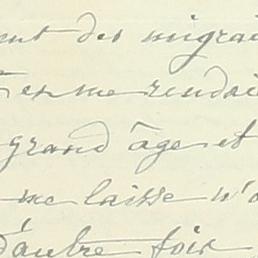 ent des migrai
en me rendai
grand âge et
me laisse n'o
d'autre fois